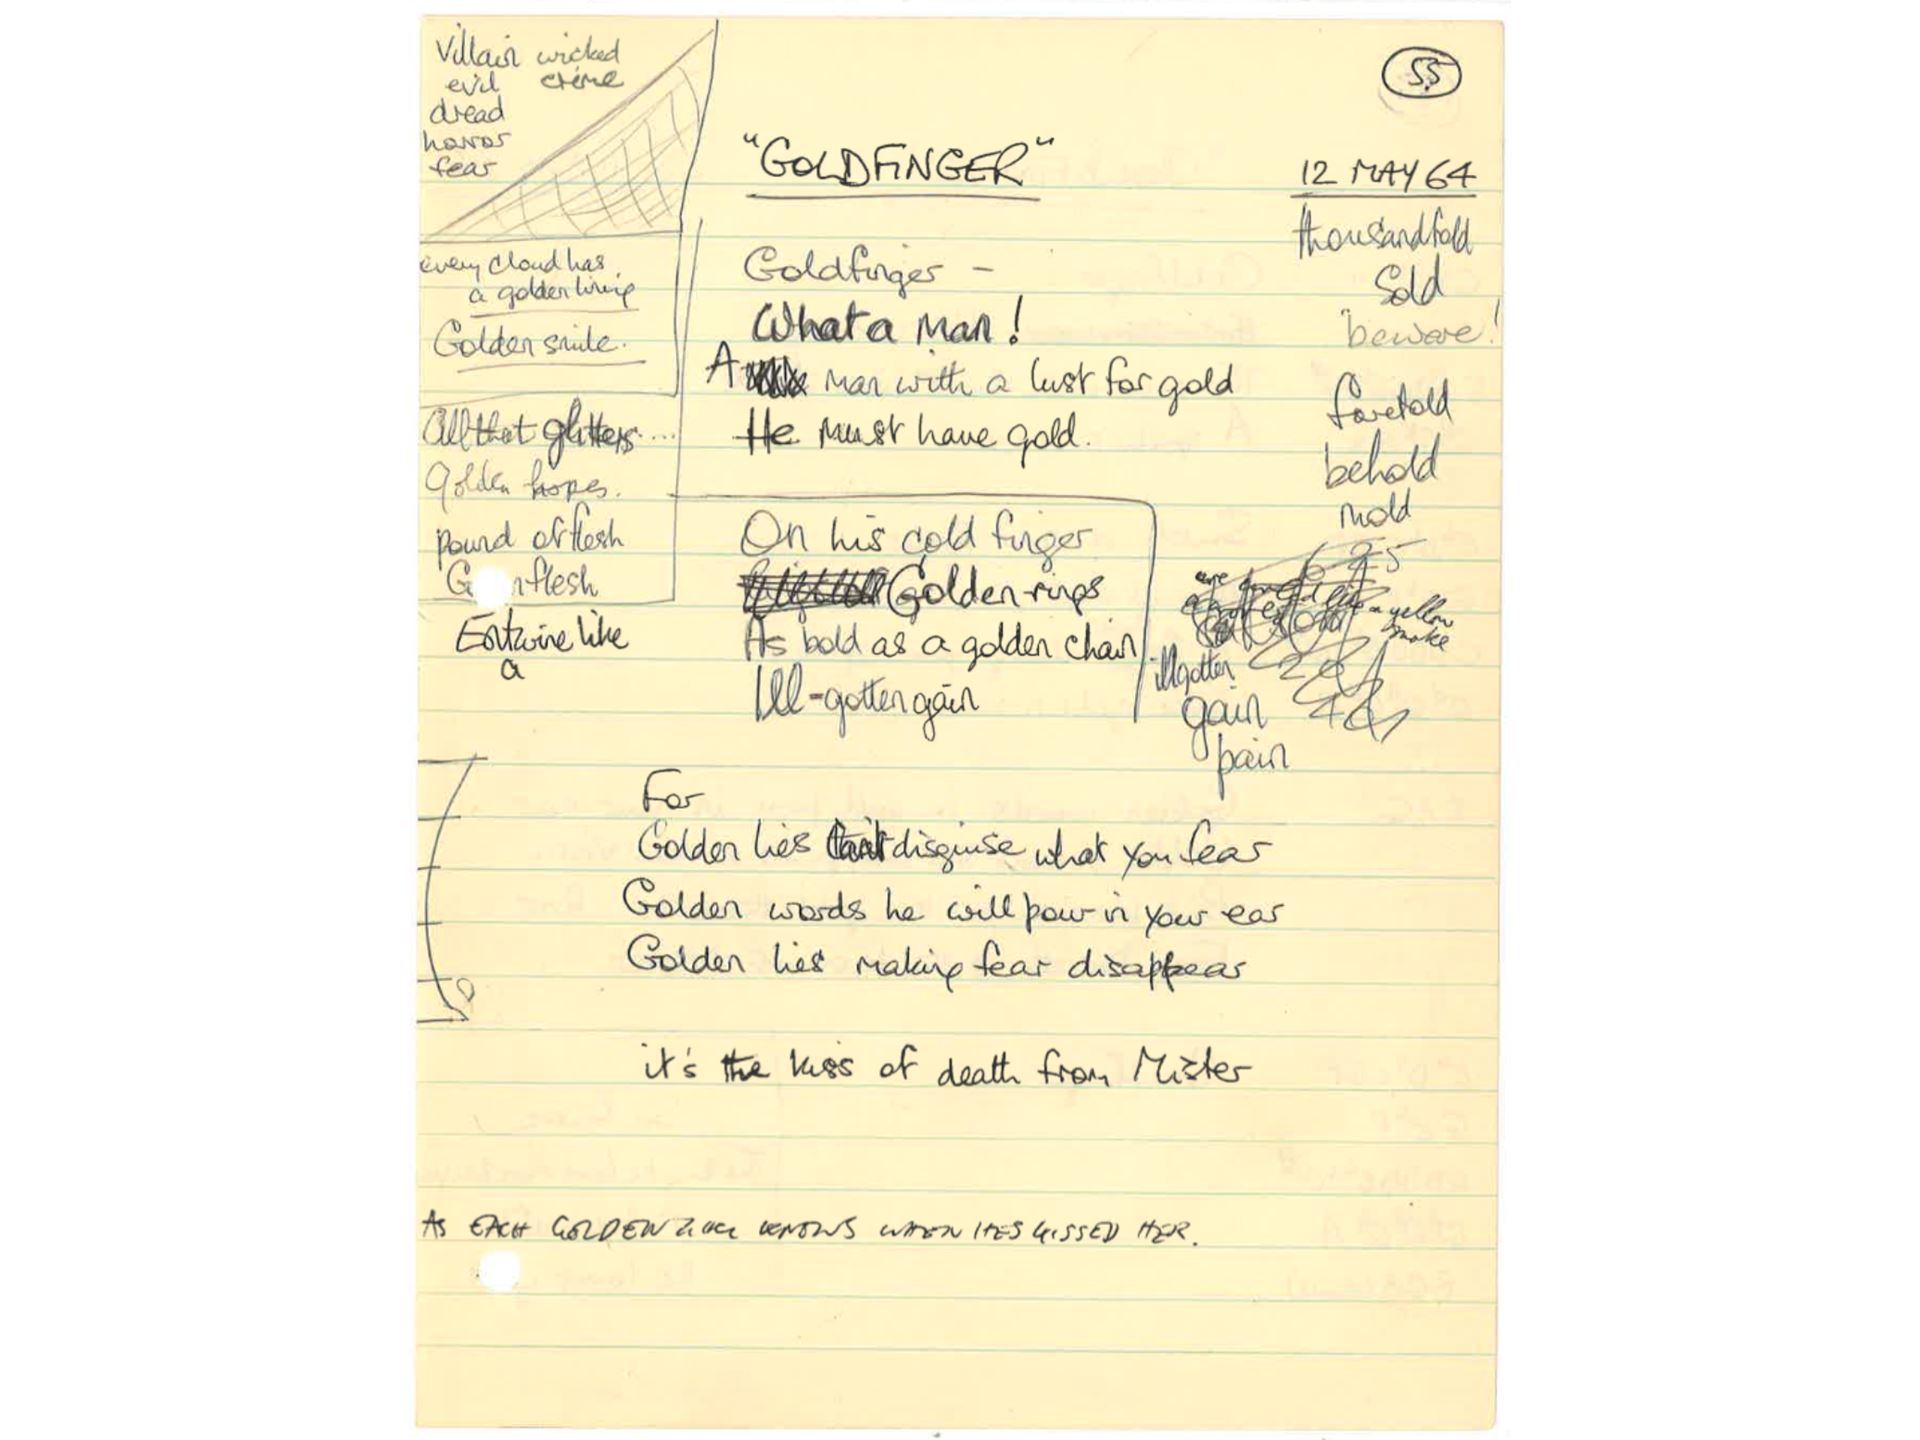 Villain wicked
evil crime
dread
horror
fear
55
"GOLDFINGER"
12 MAY 64
every cloud has
a golden lining
Golden smile.
All that glitters....
Golden hopes.
pound of flesh
flesh
Entwine like
a
Goldfinger -
What a man!
A man with a lust for gold
He must have gold.
On his cold finger
Golden rings
As bold as a golden chain
Ill-gotten gain
thousandfold
Sold
beware!
foretold
behold
mold
are
like a yellow
illgotten
gain
pain
For
Golden lies can't disguise what you fear
Golden words he will pour in your ear
Golden lies making fear disappear
it's the kiss of death from Mister
AS EACH GOLDEN KNOWS WHEN HES KISSED HER.